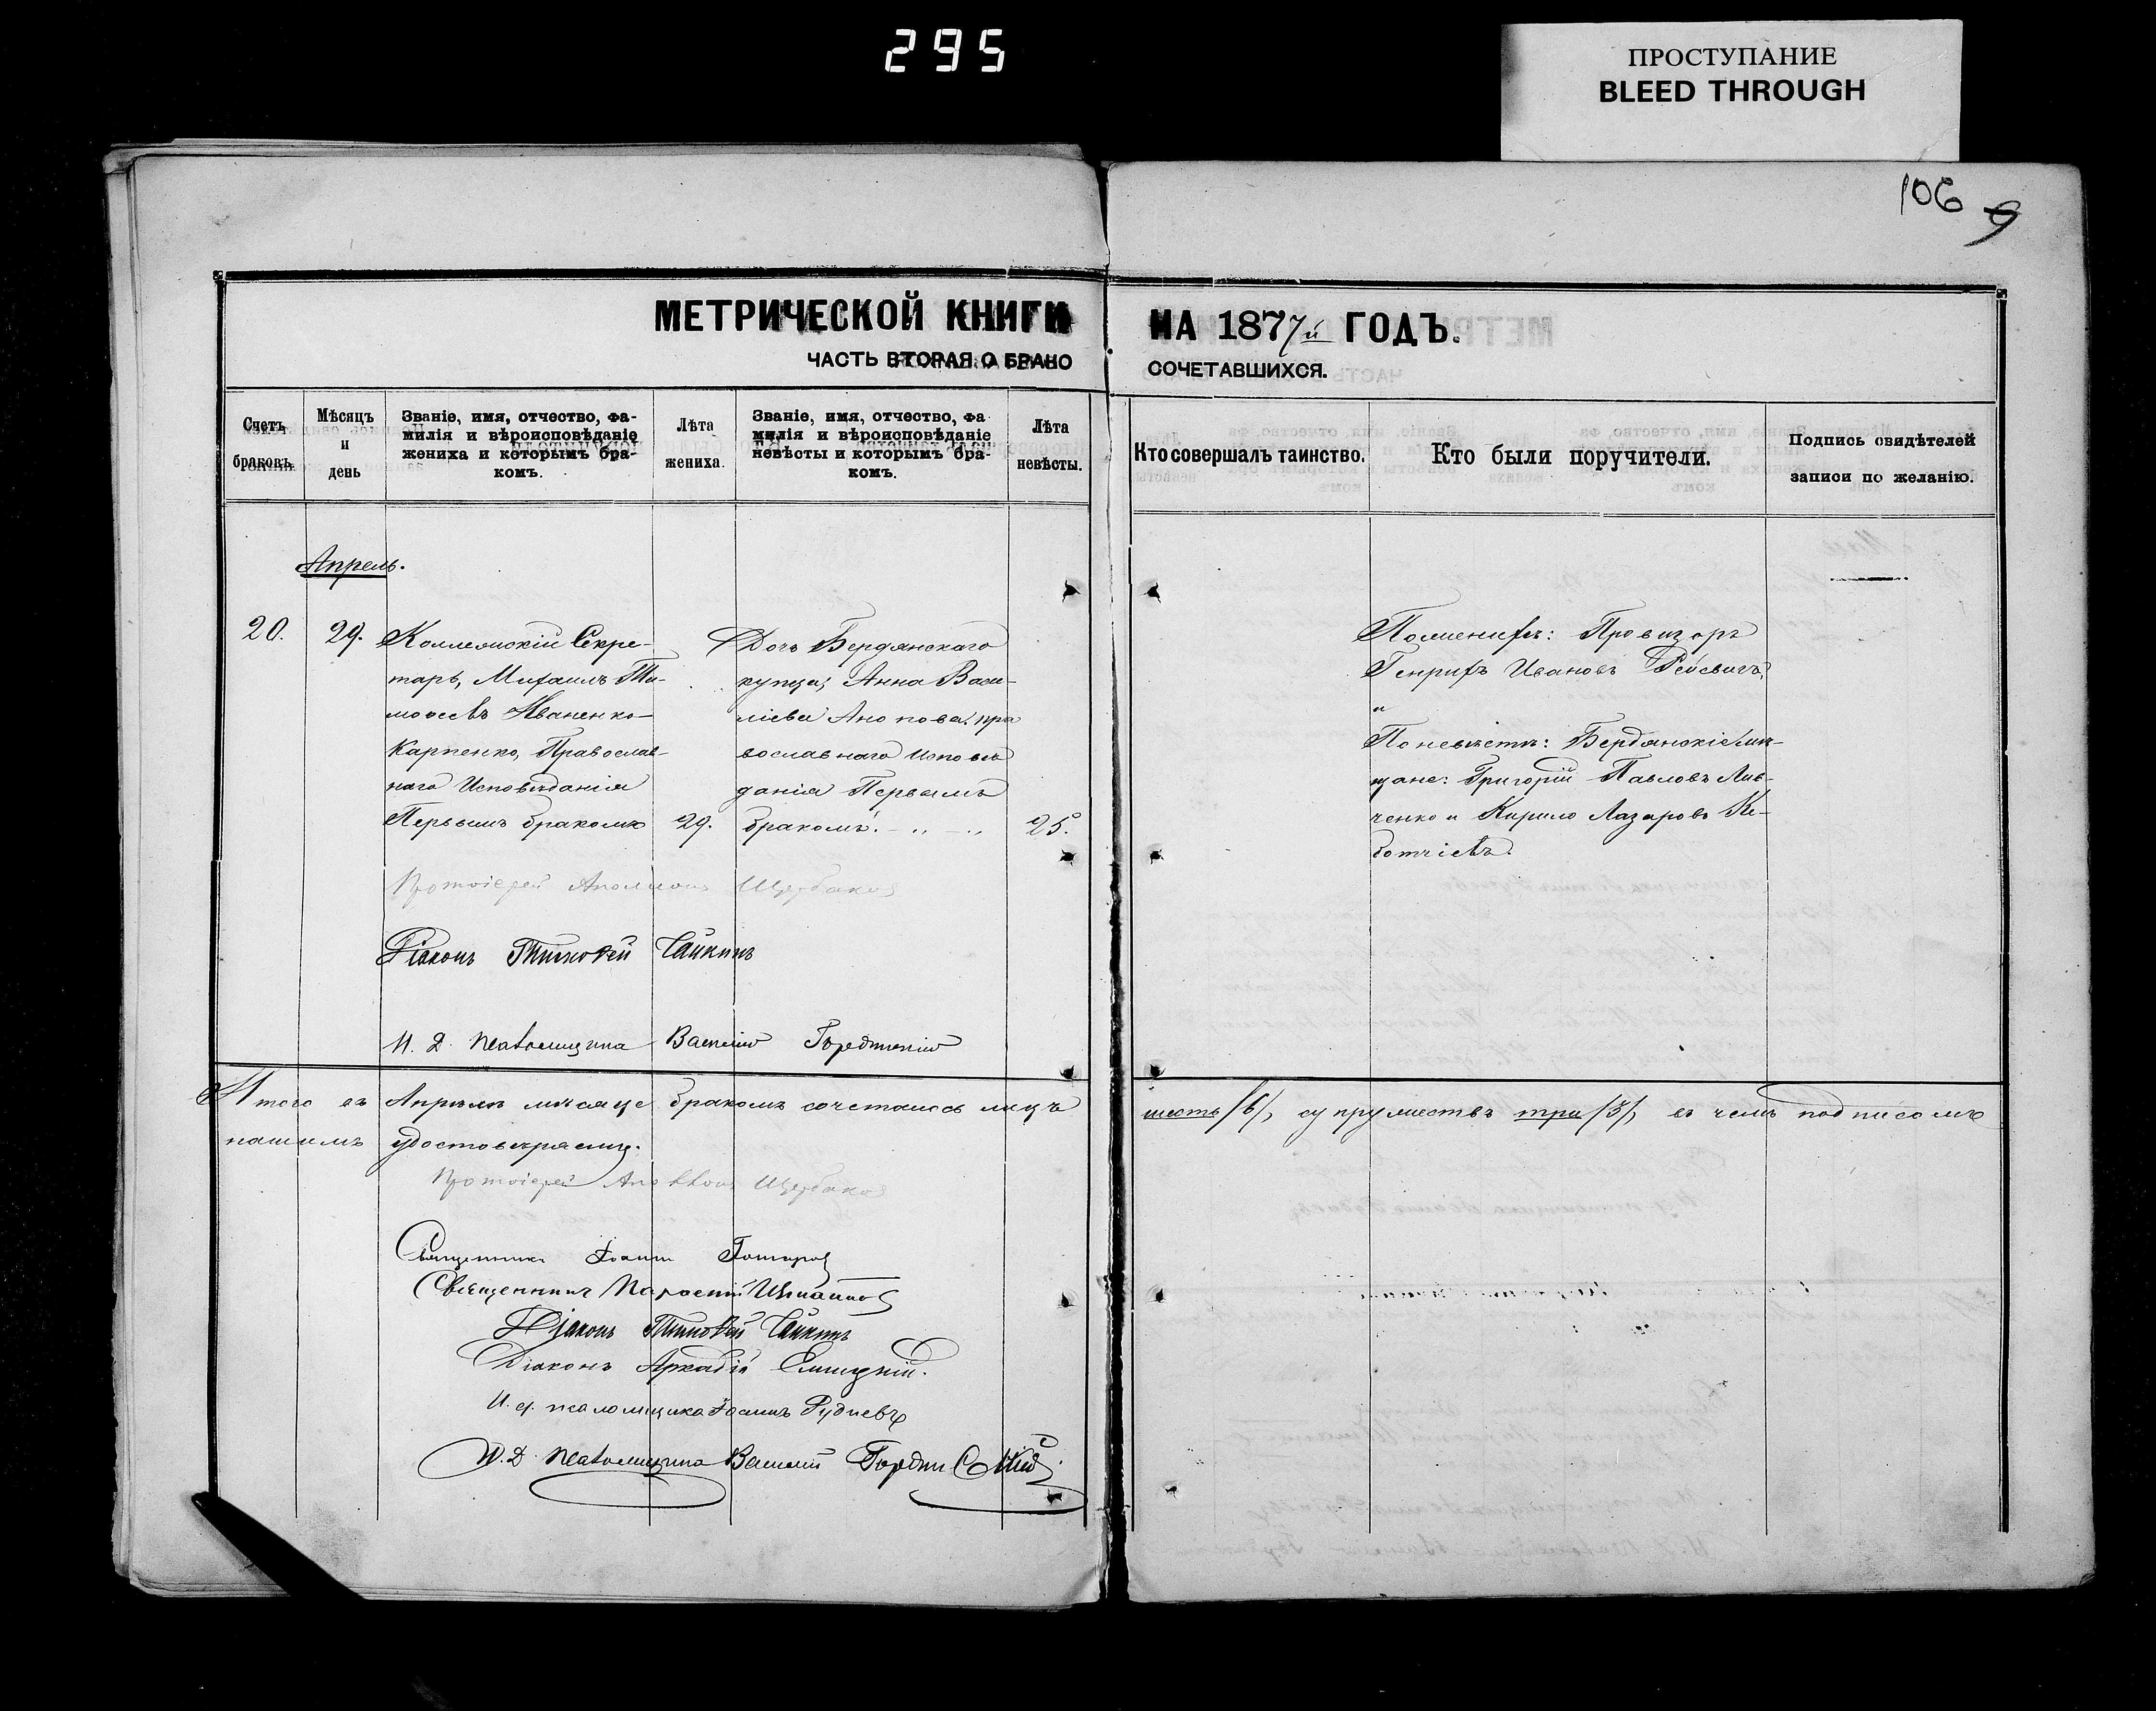 295
ПРОСТУПАНИЕ
BLEED THROUGH
106 9
МЕТРИЧЕСКОЙ КНИГИ
НА 1877й ГОДЪ.
ЧАСТЬ ВТОРАЯ О БРАКО
СОЧЕТАВШИХСЯ.
Счетъ
браковъ.
Мѣсяцъ
и
день
Званіе, имя, отчество, фа-
милія и вѣроисповѣданіе
жениха и которымъ бра-
комъ.
Лѣта
жениха.
Званіе, имя, отчество, фа
милія и вѣроисповѣданіе
невѣсты и которымъ бра-
комъ.
Лѣта
невѣсты.
Кто совершалъ таинство.
Кто были поручители.
Подпись свидѣтелей
записи по желанію.
Апрель.
20.
29.
Коллежскій Секре-
тарь, Михаилъ Ти-
моѳеевъ Иваненко-
Карпенко, Православ-
наго Исповѣданія
Первымъ бракомъ
29.
Дочь Бердянскаго
купца, Анна Васи-
ліева пра
вославнаго исповѣ
данія Первымъ
бракомъ.
25.
По женихѣ: Провизоръ
Генрихъ Ивановъ
и
По невѣстѣ: Бердянскіе мѣ-
щане: Григорій Павловъ Лив-
ченко и Кирило Лазаровъ
Протоіерей Аполлонъ Щербаковъ
Діаконъ Тимоѳей Чайкинъ
И. Д. псаломщика Василій
Итого въ Апрѣлѣ мѣсяце бракомъ сочеталось лицъ
шесть /6/, супружествъ три /3/, въ чемъ подписомъ
нашимъ удостовѣряемъ.
Протоіерей Аполлонъ Щербаковъ
Священникъ Іоаннъ
Священникъ
Діаконъ Тимоѳей Чайкинъ
Діаконъ Аркадій
И. д. псаломщика Іоаннъ Рудневъ
И. Д. псаломщика Василій